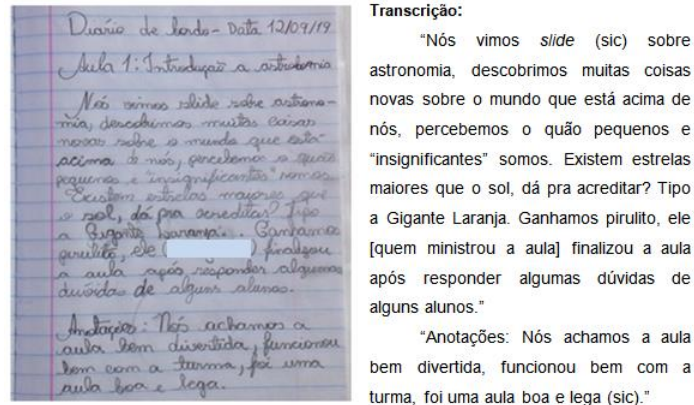 Diário de bordo - Data 12/09/19
Aula 1: Introdução a astronomia
Nós vimos slide sobre astrono-
mia, descobrimos muitas coisas
novas sobre o mundo que está
acima de nós, percebemos o quão
pequenos e "insignificantes" somos.
Existem estrelas maiores que
o sol, dá pra acreditar? Tipo
a Gigante Laranja. Ganhamos
pirulito, ele ( ) finalizou
a aula após responder algumas
duvidas de alguns alunos.
Anotações: Nós achamos a
aula bem divertida, funcionou
bem com a turma, foi uma
aula boa e lega.
Transcrição:
"Nós vimos slide (sic) sobre
astronomia, descobrimos muitas coisas
novas sobre o mundo que está acima de
nós, percebemos o quão pequenos e
"insignificantes" somos. Existem estrelas
maiores que o sol, dá pra acreditar? Tipo
a Gigante Laranja. Ganhamos pirulito, ele
[quem ministrou a aula] finalizou a aula
após responder algumas dúvidas de
alguns alunos."
"Anotações: Nós achamos a aula
bem divertida, funcionou bem com a
turma, foi uma aula boa e lega (sic)."